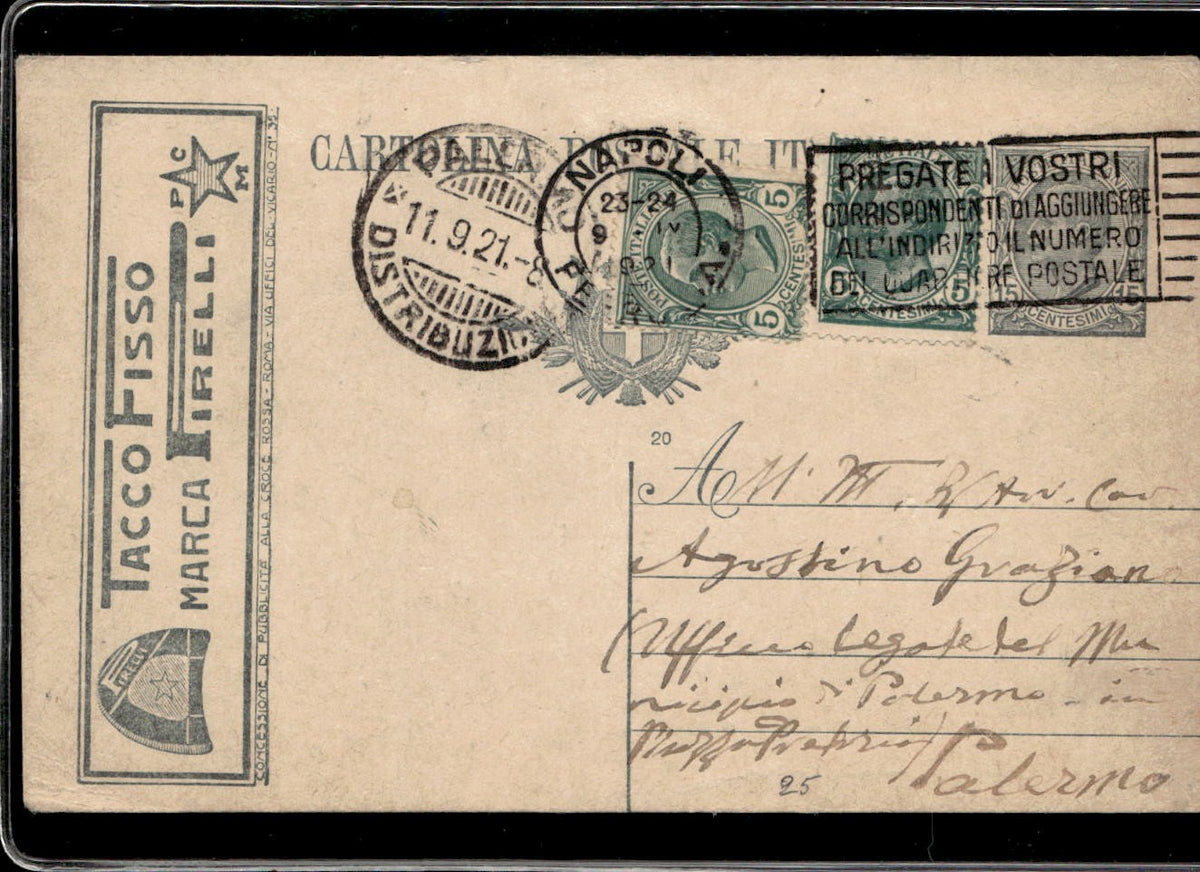 TACCO FISSO
MARCA PIRELLI
P A C M
PIRELLI
CONCESSIONE DI PUBBLICITÀ ALLA CROCE ROSSA - ROMA - VIA UFFICI DEL VICARIO - N° 35
CARTOLINA
DISTRIBUZI
11.9.21.-8
NAPOLI
23-24
9 IX
POSTE ITALIANE
5 CENTESIMI 5
5 CENTESIMI 5
15 CENTESIMI 15
PREGATE I VOSTRI
CORRISPONDENTI DI AGGIUNGERE
ALL'INDIRIZZO IL NUMERO
DEL QUARTIERE POSTALE
20
A Av. Cav.
Agostino Graziano
(Ufficio Legale del Mu
nicipio di Palermo - in
Piazza Pretoria)
Palermo
25